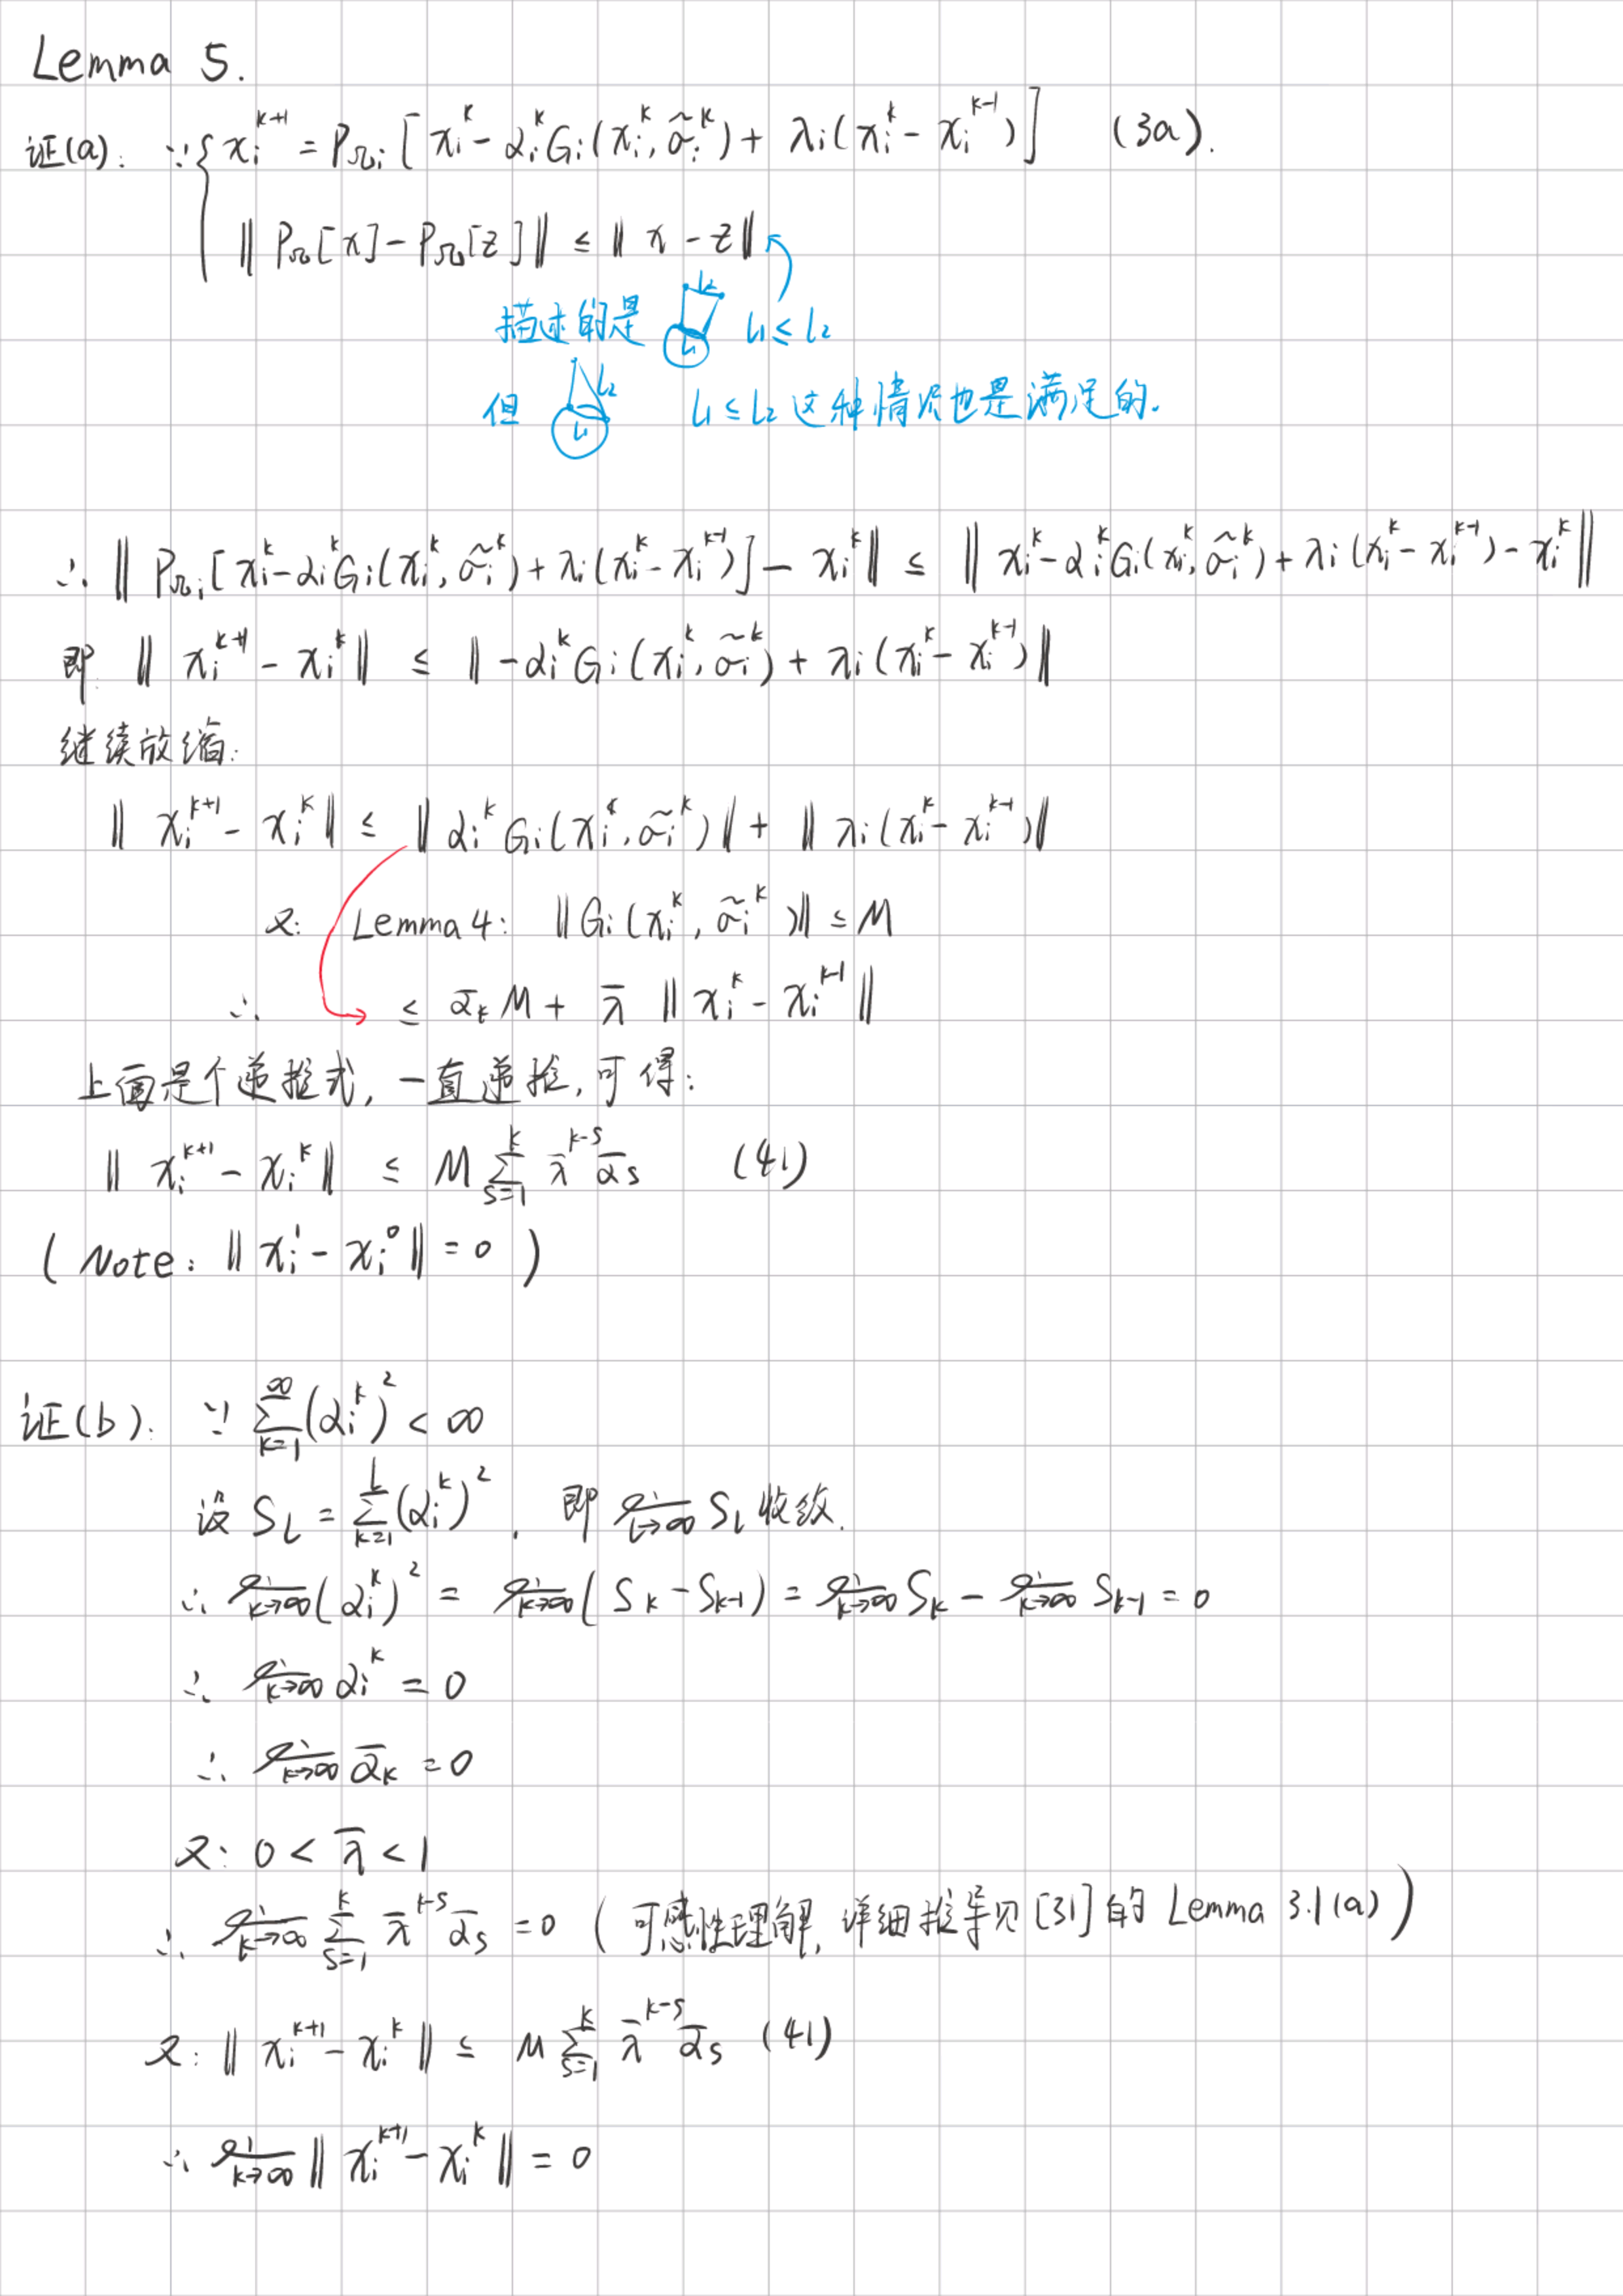 Lemma 5.
证(a): ∵ { x_i^{k+1} = P_{Ω_i} [ x_i^k - α_i^k G_i(x_i^k, \tilde{σ}_i^k) + λ_i(x_i^k - x_i^{k-1}) ] (3a).
‖ P_Ω[x] - P_Ω[z] ‖ ≤ ‖ x - z ‖
描述的是 l_2 l_1 l_1 ≤ l_2
但 l_2 l_1 l_1 ≤ l_2 这种情况也是满足的.
∴ ‖ P_{Ω_i}[ x_i^k - α_i^k G_i(x_i^k, \tilde{σ}_i^k) + λ_i(x_i^k - x_i^{k-1}) ] - x_i^k ‖ ≤ ‖ x_i^k - α_i^k G_i(x_i^k, \tilde{σ}_i^k) + λ_i(x_i^k - x_i^{k-1}) - x_i^k ‖
即 ‖ x_i^{k+1} - x_i^k ‖ ≤ ‖ -α_i^k G_i(x_i^k, \tilde{σ}_i^k) + λ_i(x_i^k - x_i^{k-1}) ‖
继续放缩:
‖ x_i^{k+1} - x_i^k ‖ ≤ ‖ α_i^k G_i(x_i^k, \tilde{σ}_i^k) ‖ + ‖ λ_i(x_i^k - x_i^{k-1}) ‖
又: Lemma 4: ‖ G_i(x_i^k, \tilde{σ}_i^k) ‖ ≤ M
∴ ≤ \bar{α}_k M + \bar{λ} ‖ x_i^k - x_i^{k-1} ‖
上面是个递推式, 一直递推, 可得:
‖ x_i^{k+1} - x_i^k ‖ ≤ M \sum_{s=1}^{k} \bar{λ}^{k-s} \bar{α}_s (41)
( Note: ‖ x_i^1 - x_i^0 ‖ = 0 )
证(b): ∵ \sum_{k=1}^{∞} (α_i^k)^2 < ∞
设 S_L = \sum_{k=1}^{L} (α_i^k)^2, 即 \lim_{L→∞} S_L 收敛.
∴ \lim_{k→∞} (α_i^k)^2 = \lim_{k→∞} ( S_k - S_{k-1} ) = \lim_{k→∞} S_k - \lim_{k→∞} S_{k-1} = 0
∴ \lim_{k→∞} α_i^k = 0
∴ \lim_{k→∞} \bar{α}_k = 0
又: 0 < \bar{λ} < 1
∴ \lim_{k→∞} \sum_{s=1}^{k} \bar{λ}^{k-s} \bar{α}_s = 0 ( 可感性理解, 详细推导见 [31] 的 Lemma 3.1(a) )
又: ‖ x_i^{k+1} - x_i^k ‖ ≤ M \sum_{s=1}^{k} \bar{λ}^{k-s} \bar{α}_s (41)
∴ \lim_{k→∞} ‖ x_i^{k+1} - x_i^k ‖ = 0